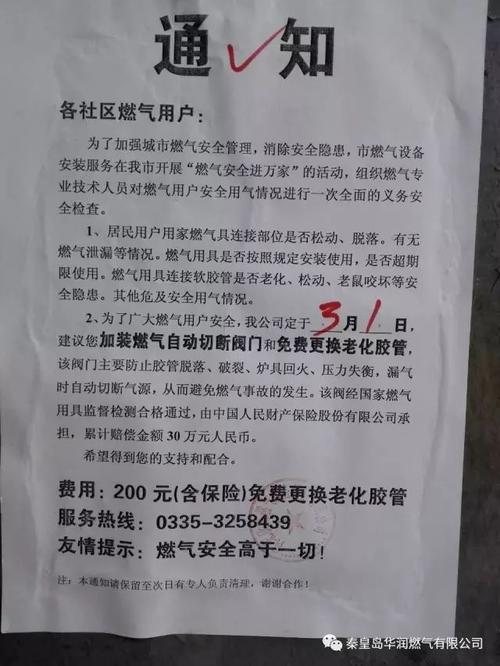 通知
各社区燃气用户:
为了加强城市燃气安全管理,消除安全隐患,市燃气设备
安装服务在我市开展“燃气安全进万家”的活动,组织燃气专
业技术人员对燃气用户安全用气情况进行一次全面的义务安
全检查。
1、居民用户用家燃气具连接部位是否松动、脱落。有无
燃气泄漏等情况。燃气用具是否按照规定安装使用,是否超期
限使用。燃气用具连接软胶管是否老化、松动、老鼠咬坏等安
全隐患。其他危及安全用气情况。
2、为了广大燃气用户安全,我公司定于 3月1日,
建议您加装燃气自动切断阀门和免费更换老化胶管,
该阀门主要防止胶管脱落、破裂、炉具回火、压力失衡,漏气
时自动切断气源,从而避免燃气事故的发生。该阀经国家燃气
用具监督检测合格通过,由中国人民财产保险股份有限公司承
担,累计赔偿金额30万元人民币。
希望得到您的支持和配合。
费用:200元(含保险)免费更换老化胶管
服务热线:0335-3258439
友情提示:燃气安全高于一切!
注:本通知请保留至次日有专人负责清理,谢谢合作!
秦皇岛华润燃气有限公司